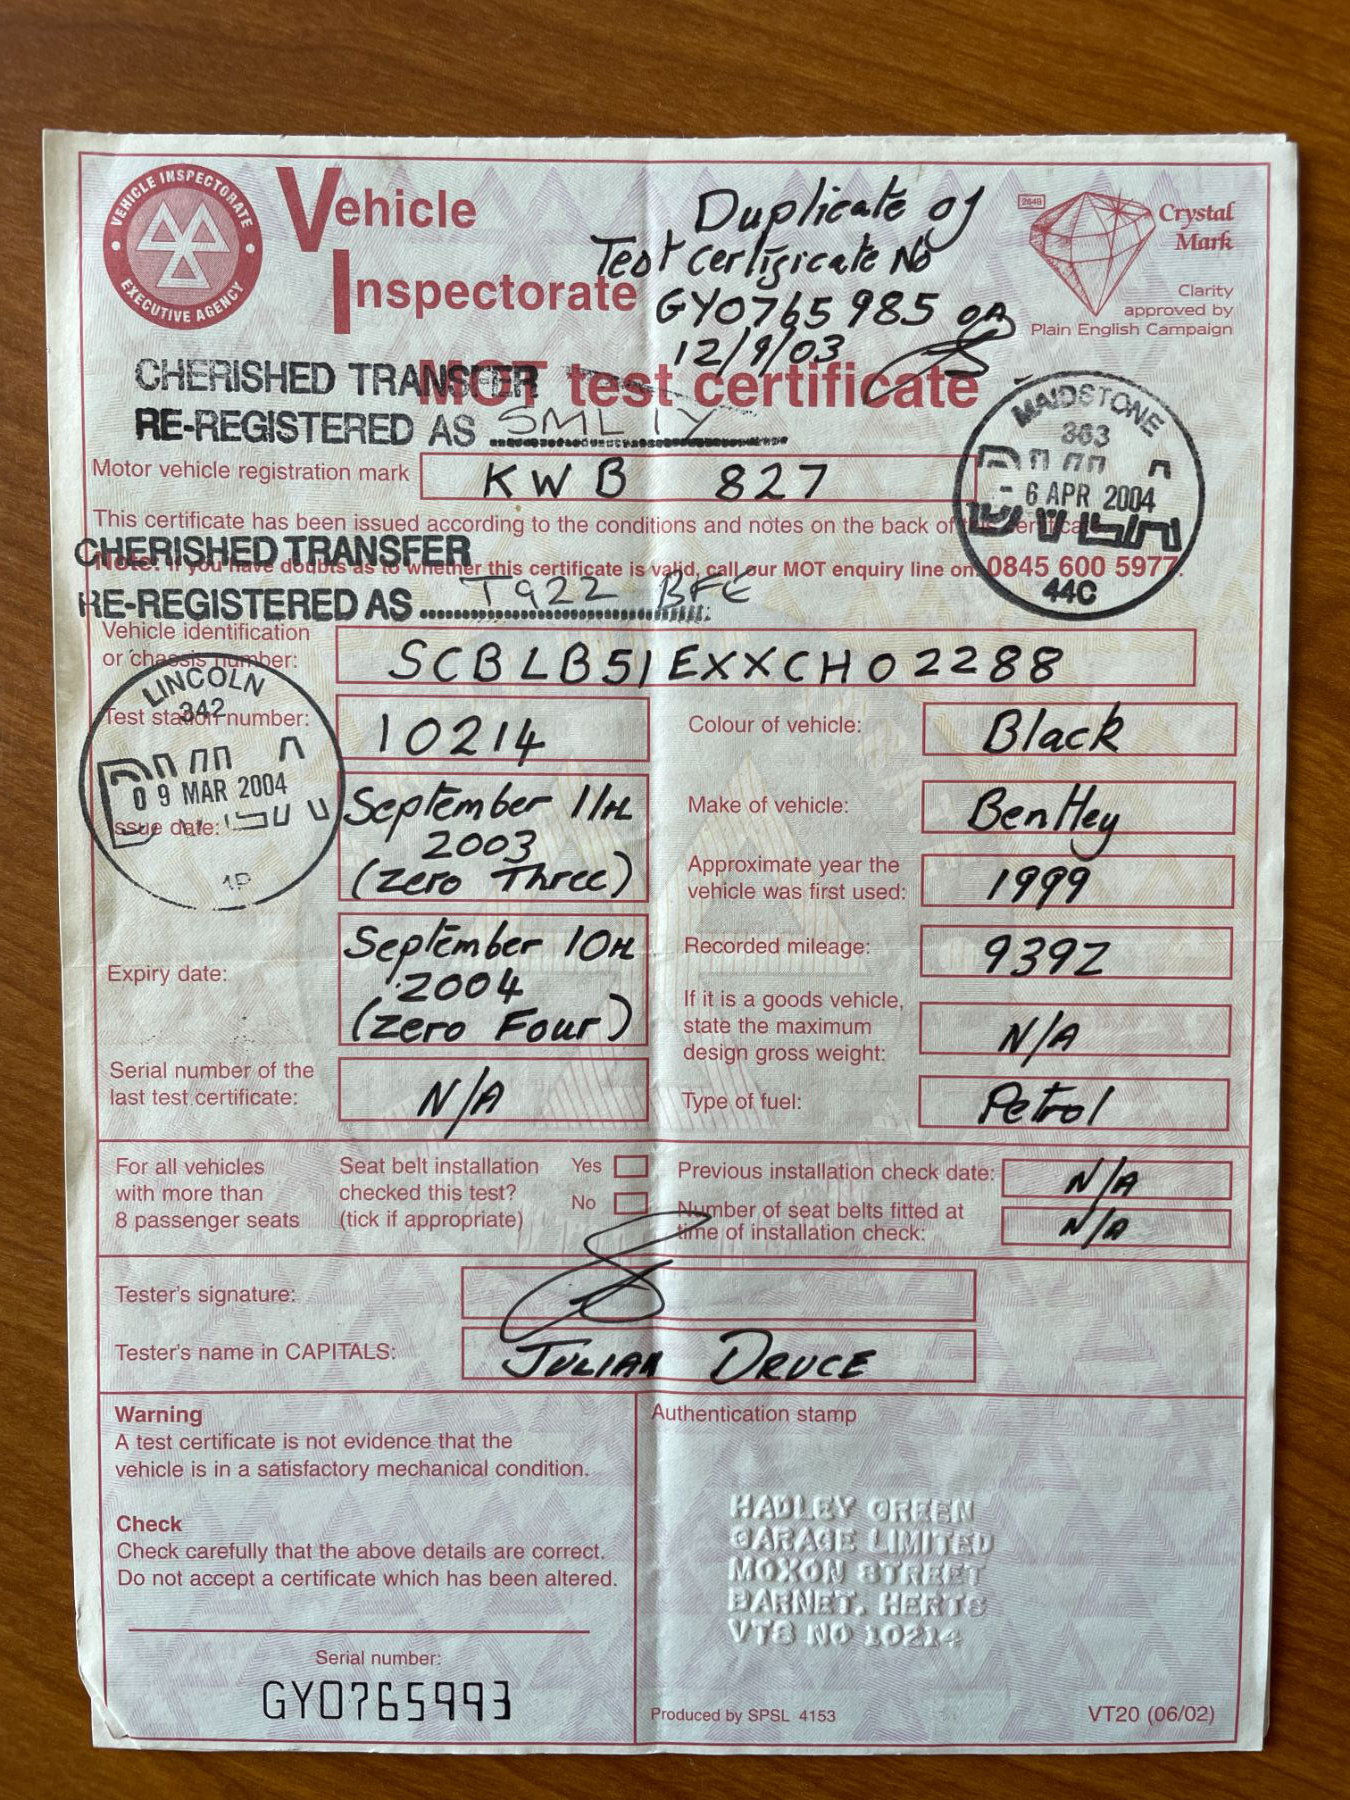 VEHICLE INSPECTORATE
EXECUTIVE AGENCY
Vehicle
Inspectorate
Duplicate of
Test Certificate No
GY0765985 on
12/9/03
2649
Crystal
Mark
Clarity
approved by
Plain English Campaign
MOT test certificate
CHERISHED TRANSFER
RE-REGISTERED AS SML 1Y
Motor vehicle registration mark KWB 827
MAIDSTONE
363
- 6 APR 2004
44C
This certificate has been issued according to the conditions and notes on the back of this certificate.
CHERISHED TRANSFER
Note: If you have doubts as to whether this certificate is valid, call our MOT enquiry line on: 0845 600 5977.
RE-REGISTERED AS T922 BFE
Vehicle identification
or chassis number: SCBLB51EXXCH02288
LINCOLN
342
0 9 MAR 2004
1P
Test station number: 10214
Issue date: September 11th
2003
(Zero Three)
Expiry date: September 10th
2004
(Zero Four)
Serial number of the
last test certificate: N/A
Colour of vehicle: Black
Make of vehicle: Bentley
Approximate year the
vehicle was first used: 1999
Recorded mileage: 9392
If it is a goods vehicle,
state the maximum
design gross weight: N/A
Type of fuel: Petrol
For all vehicles
with more than
8 passenger seats
Seat belt installation
checked this test?
(tick if appropriate)
Yes
No
Previous installation check date: N/A
Number of seat belts fitted at
time of installation check: N/A
Tester's signature:
Tester's name in CAPITALS: JULIAN DRUCE
Warning
A test certificate is not evidence that the
vehicle is in a satisfactory mechanical condition.
Check
Check carefully that the above details are correct.
Do not accept a certificate which has been altered.
Serial number:
GY0765993
Authentication stamp
HADLEY GREEN
GARAGE LIMITED
MOXON STREET
BARNET, HERTS
VTS NO 10214
Produced by SPSL 4153
VT20 (06/02)